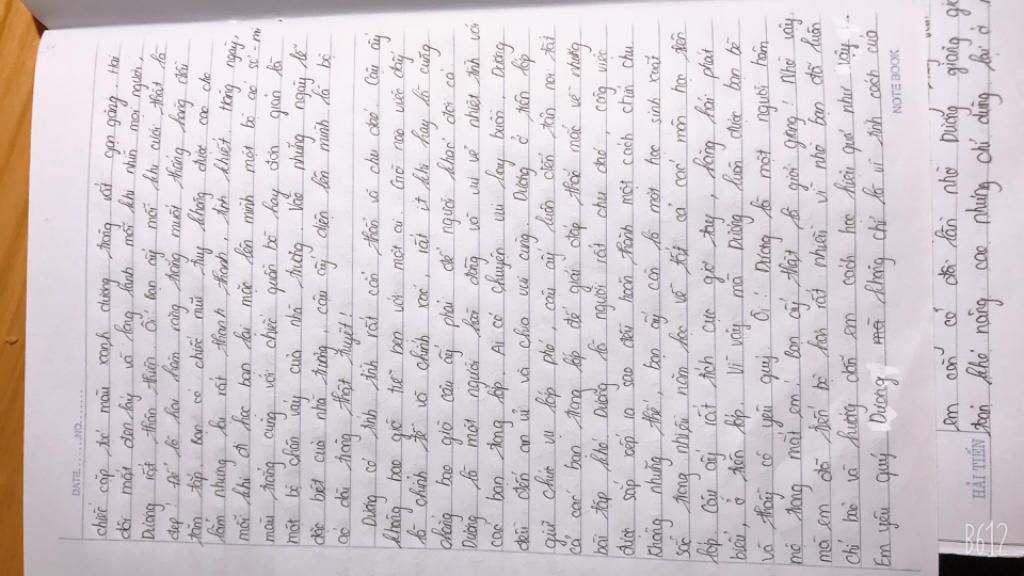 DATE.........NO.........
chiếc cặp tóc màu xanh dương trông rất gọn gàng. Hai
đôi mắt đen láy và long lanh mỗi khi nhìn mọi người,
Dương rất thân thiện. Ôi! Bạn ấy mỗi khi cười thật là
đẹp! Nó lộ hai hàm răng trắng muốt thẳng hàng đều
tăm tắp. Bạn có chiếc mũi tuy không được cao cho
lắm nhưng lại rất thanh thanh, tinh khiết. Hằng ngày,
mỗi khi đi học bạn lại mặc lên mình một bộ áo sơ-mi
màu trắng cùng với chiếc quần bò hay đơn giản là
một bộ chân váy của nhà trường. Vào những ngày lễ
đặc biệt của nhà trường cậu ấy diện lên mình là bộ
áo dài trông thật tuyệt!
Dương có tính tình rất cẩn thận và chu đáo. Cậu ấy
không bao giờ thù bạn với một ai. Giờ nào việc đấy
là chính tả và chính xác, rất ít khi hay là cũng
chẳng bao giờ cậu ấy phải để người khác đợi cả.
Dương là một người hòa đồng và vui vẻ nhiệt tình với
các bạn trong lớp. Ai có chuyện vui hay buồn, Dương
đều đến an ủi và chia vui cùng. Dương ở trên lớp
giữ chức vụ lớp phó, cậu ấy luôn dẫn trên nơi tất
cả các bạn trong lớp để giải đáp thắc mắc về những
bài tập khó. Dương là người rất chu đáo, công việc
được sắp xếp ra sao đều hoàn thành một cách chỉn chu.
Không những thế, bạn ấy còn là một học sinh xuất
sắc trong nhiều năm học về tất cả các môn học trên
lớp. Cậu ấy rất tích cực giơ tay, hăng hái phát
biểu ở trên lớp. Vì vậy mà Dương luôn được bạn bè
và thầy cô yêu quý. Ôi! Dương là một người bạn
mơ trong mắt em. Bạn ấy thật là giỏi giang! Nhờ vậy
mà em đã tiến bộ hơn rất nhiều vì nhờ bạn đã luôn
chỉ bảo và hướng dẫn em cách học hiệu quả như ngày nay.
Em yêu quý Dương không chỉ là vì tính cách của
NOTEBOOK
Em còn có đôi lần nhờ Dương giảng giú
toán khó nâng cao nhưng chỉ dừng lại ở
HẢI TIẾN
B612